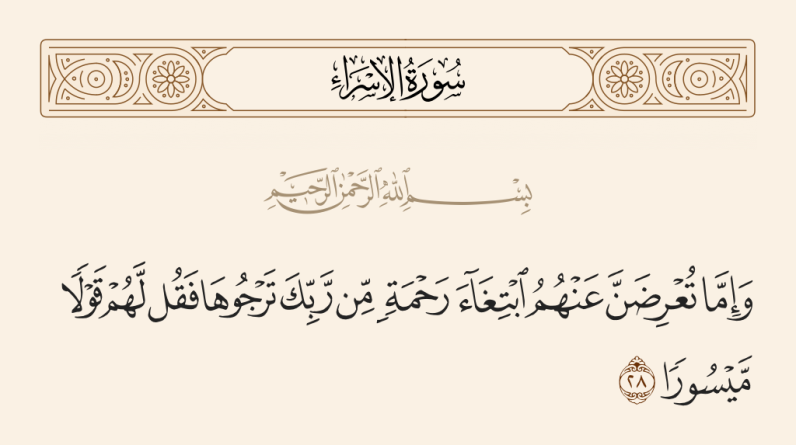 سُورَةُ الإِسْرَاءِ
بِسْمِ اللَّهِ الرَّحْمَٰنِ الرَّحِيمِ
وَإِمَّا تُعْرِضَنَّ عَنْهُمُ ٱبْتِغَآءَ رَحْمَةٍ مِّن رَّبِّكَ تَرْجُوهَا فَقُل لَّهُمْ قَوْلًا
مَّيْسُورًا ٢٨